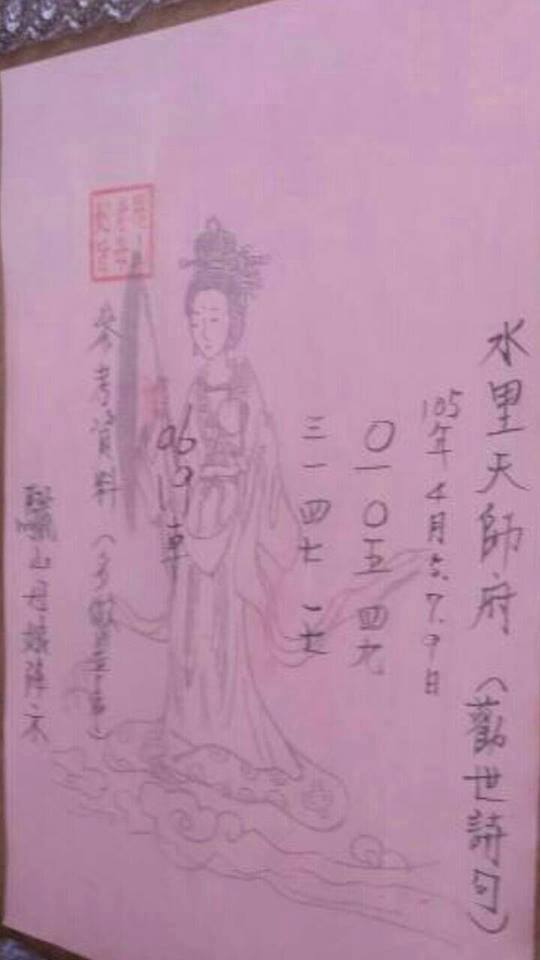 水里天師府（勸世詩句）
105年4月5.7.9日
〇一 〇五 四九
三一 四七 一七
參考資料（多做善事）
驪山母娘降示